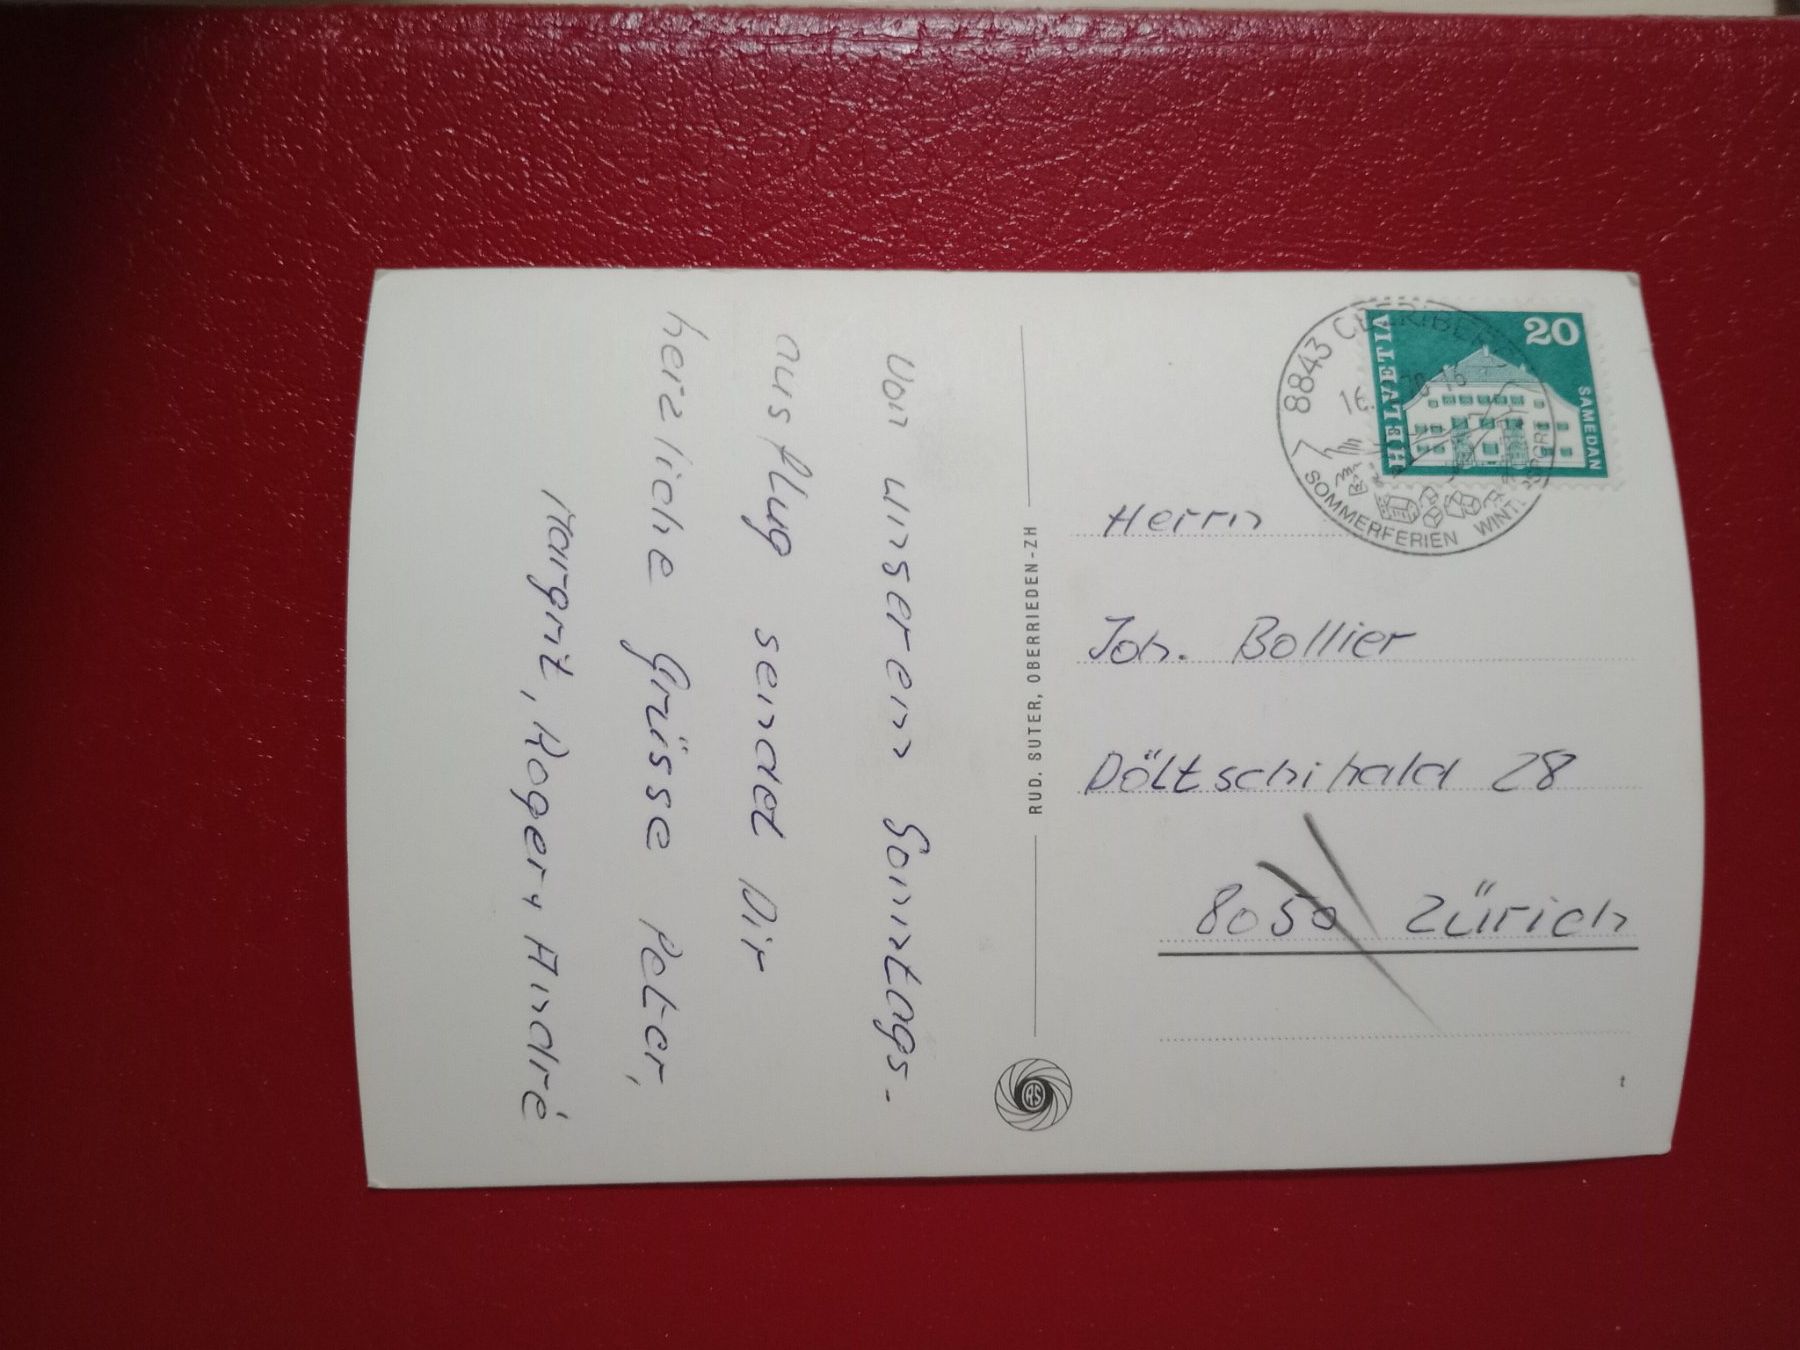 von unseren Sonntags-
ausflug sendet Dir
herzliche Grüsse Peter,
Margrit, Roger u André
RUD. SUTER, OBERRIEDEN-ZH
RS
HELVETIA
20
SAMEDAN
8843
16.
SOMMERFERIEN
Herrn
Joh. Bollier
Döltschihald 28
8050 Zürich